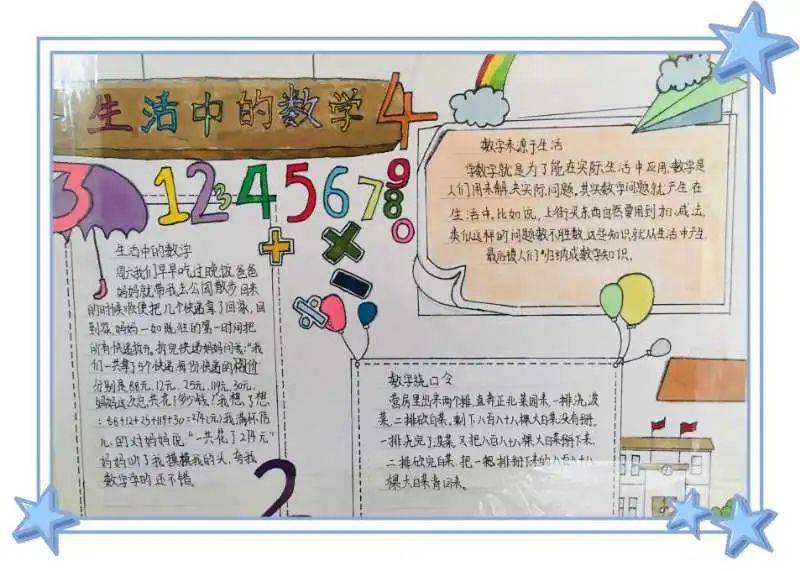 生活中的数学
3 1 2 3 4 5 6 7 8 9 0
4
生活中的数学
周六我们早早吃过晚饭,爸爸
妈妈就带我去公园散步,回来
的时候顺便把几个快递拿了回家,回
到家,妈妈一如既往的第一时间把
所有快递拆开。拆完快递妈妈问我:“我
们一共拿了5个快递,每份快递的价
分别是68元,12元,25元,119元,30元,
妈妈这次总共花了多少钱?”我想了想
:68+12+25+119+30=254(元)我满怀信
心的对妈妈说:“一共花了254元”
妈妈听了我摸摸我的头,夸我
数学学的还不错。
2
数学来源于生活
学数学就是为了能在实际生活中应用,数学是
人们用来解决实际问题,其实数学问题就产生在
生活中。比如说,上街买东西自然要用到加、减法,
类似这样的问题数不胜数,这些知识就从生活中产生,
最后被人们归纳成数学知识。
数学绕口令
营房里出来两个排,直奔正北菜园来,一排浇菠
菜,二排砍白菜。剩下八百八十八棵大白菜没有掰。
一排浇完了菠菜,又把八百八十八棵大白菜掰下来,
二排砍完白菜,把一排掰下来的八百八十八
棵大白菜背回来。